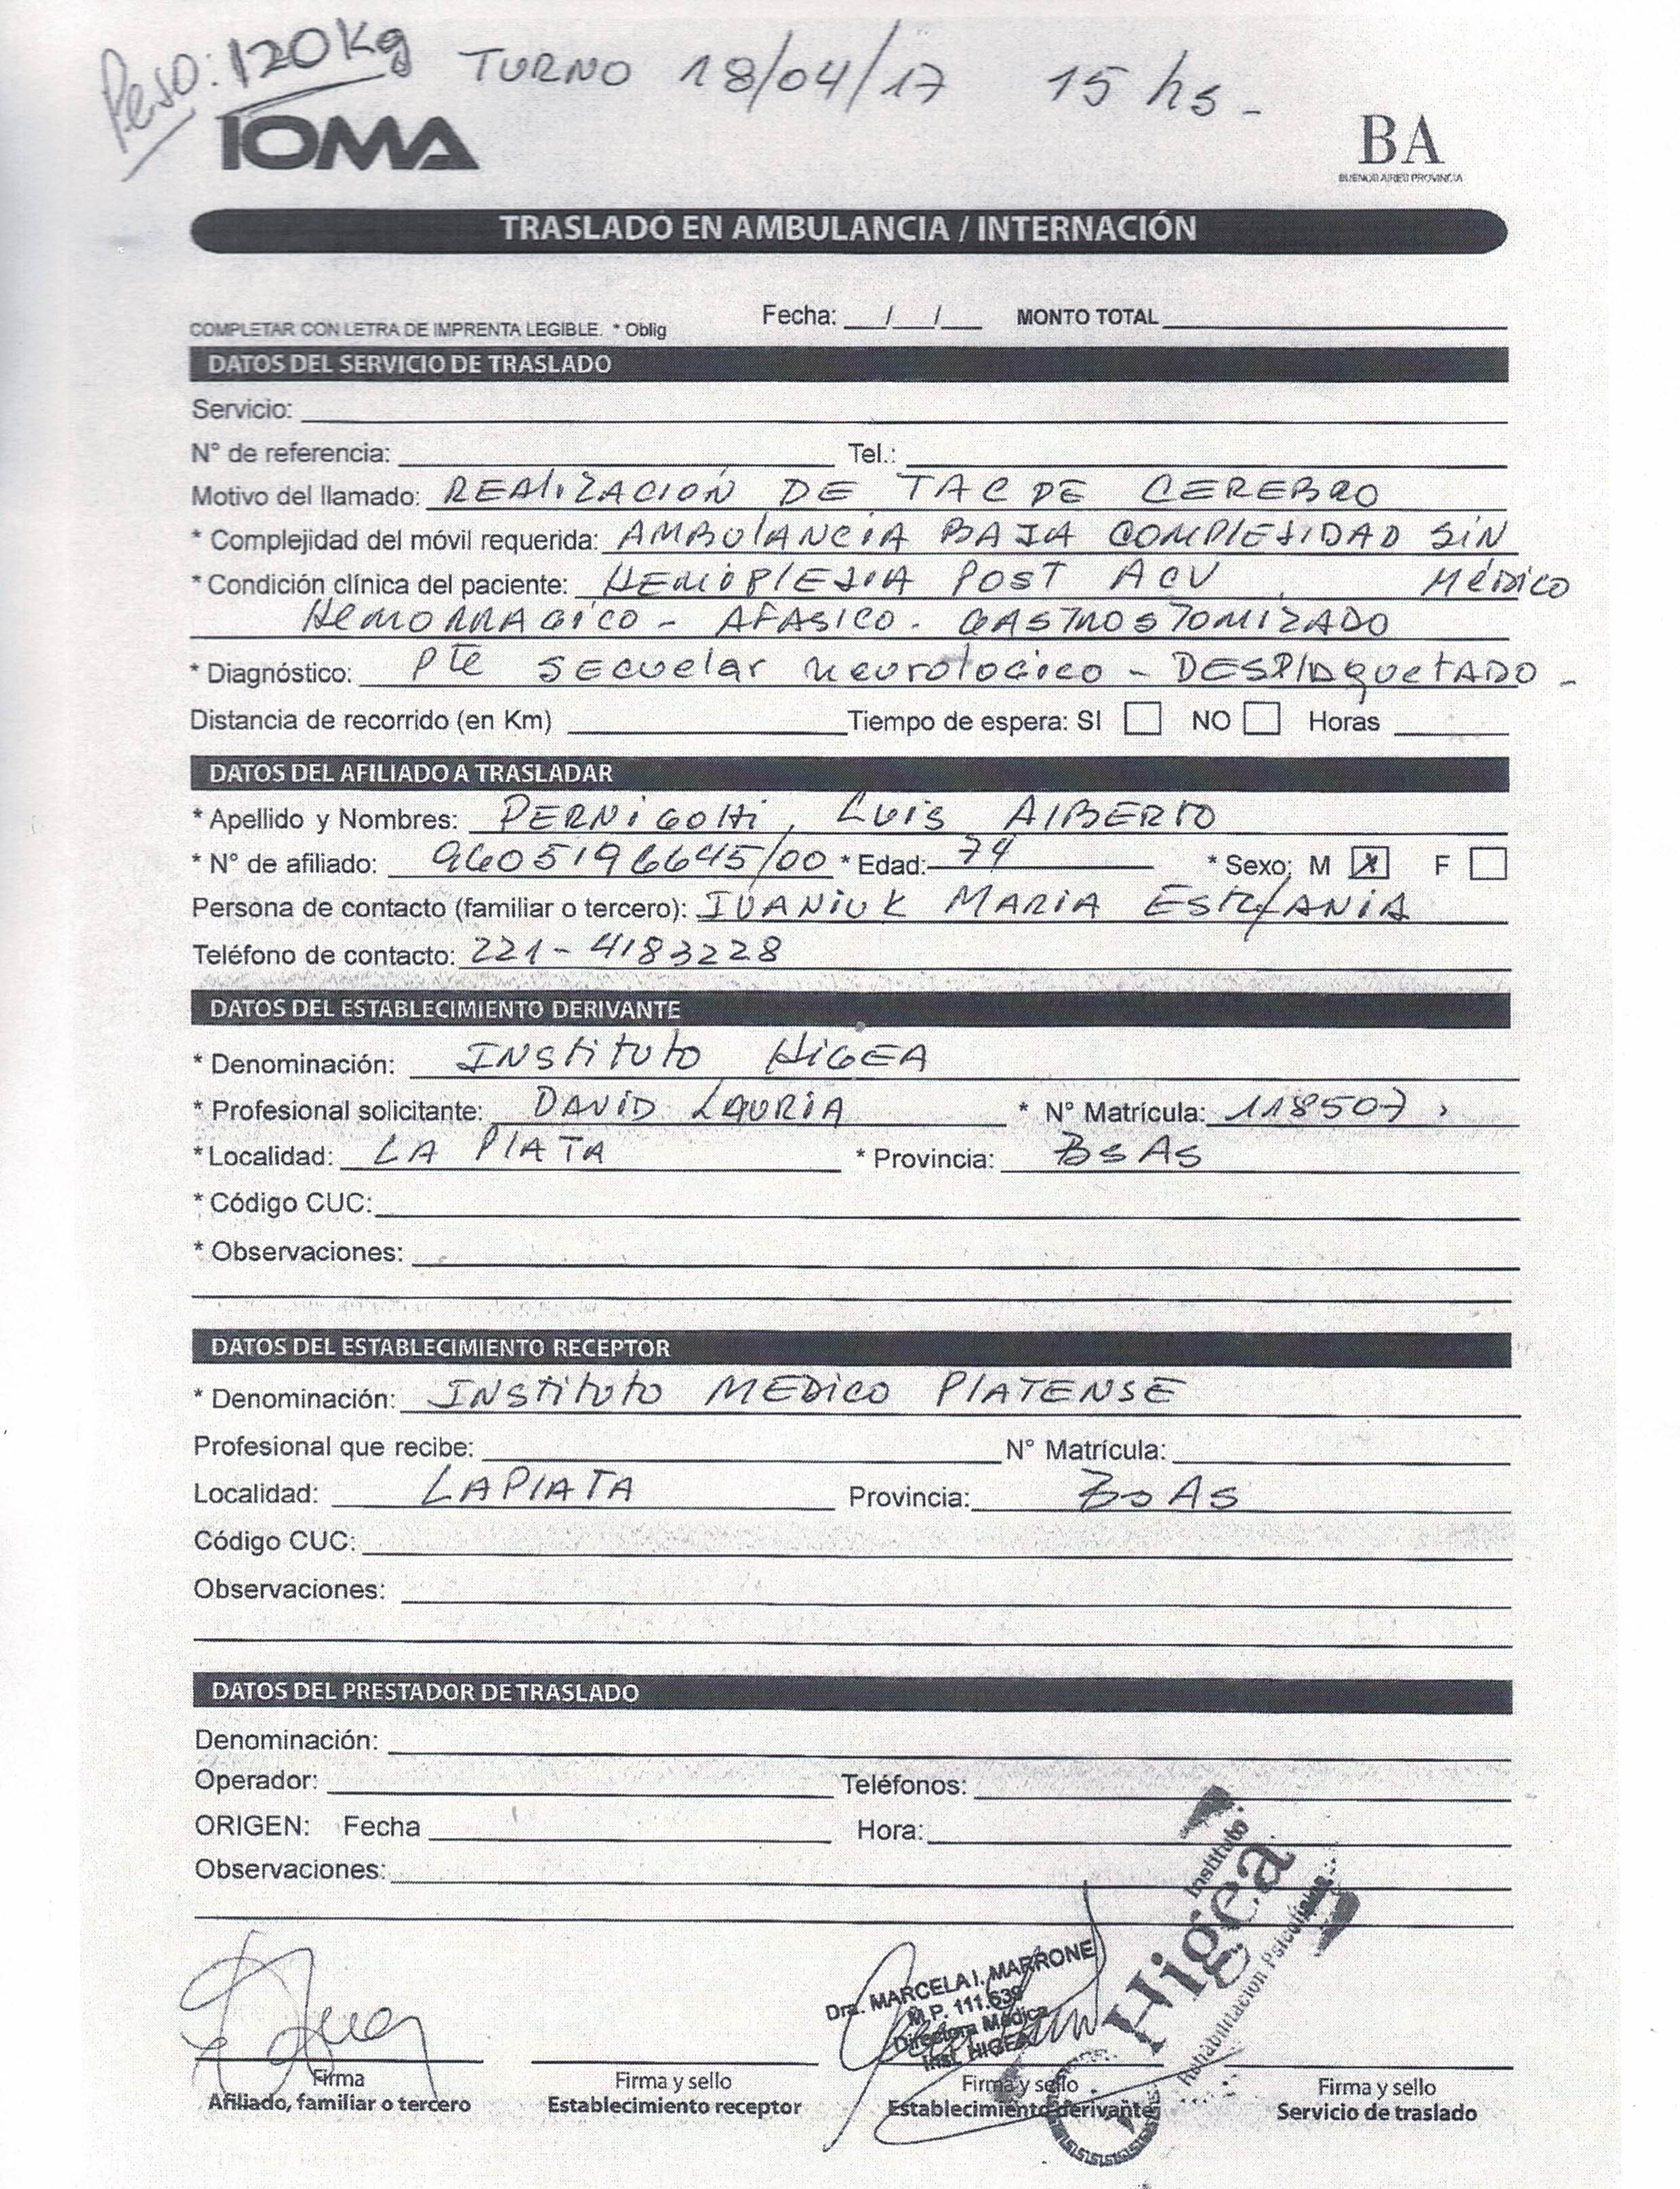 Peso: 120 kg TURNO 18/04/17 15 hs -
IOMA
BA
BUENOS AIRES PROVINCIA
TRASLADO EN AMBULANCIA / INTERNACIÓN
COMPLETAR CON LETRA DE IMPRENTA LEGIBLE. * Oblig Fecha: __/__/__ MONTO TOTAL
DATOS DEL SERVICIO DE TRASLADO
Servicio:
N° de referencia: Tel.:
Motivo del llamado: REALIZACIÓN DE TAC DE CEREBRO
* Complejidad del móvil requerida: AMBULANCIA BAJA COMPLEJIDAD SIN
* Condición clínica del paciente: HEMIPLEJIA POST ACV MÉDICO
HEMORRAGICO - AFASICO. GASTROSTOMIZADO
* Diagnóstico: Pte SECUELAR NEUROLOGICO - DESPLAQUETADO -
Distancia de recorrido (en Km) Tiempo de espera: SI NO Horas
DATOS DEL AFILIADO A TRASLADAR
* Apellido y Nombres: PERNIGOTTI, LUIS ALBERTO
* N° de afiliado: 9605196645/00 * Edad: 74 * Sexo: M X F
Persona de contacto (familiar o tercero): IVANIUK MARIA ESTEFANIA
Teléfono de contacto: 221-4183228
DATOS DEL ESTABLECIMIENTO DERIVANTE
* Denominación: INSTITUTO HIGEA
* Profesional solicitante: DAVID LAURIA * N° Matrícula: 118507
* Localidad: LA PLATA * Provincia: BS AS
* Código CUC:
* Observaciones:
DATOS DEL ESTABLECIMIENTO RECEPTOR
* Denominación: INSTITUTO MEDICO PLATENSE
Profesional que recibe: N° Matrícula:
Localidad: LA PLATA Provincia: BS AS
Código CUC:
Observaciones:
DATOS DEL PRESTADOR DE TRASLADO
Denominación:
Operador: Teléfonos:
ORIGEN: Fecha Hora:
Observaciones:
Instituto
Higea
Rehabilitación Psicofísica
Dra. MARCELA I. MARRONE
M.P. 111.639
Directora Médica
Inst. HIGEA
Firma Firma y sello Firma y sello Firma y sello
Afiliado, familiar o tercero Establecimiento receptor Establecimiento derivante Servicio de traslado